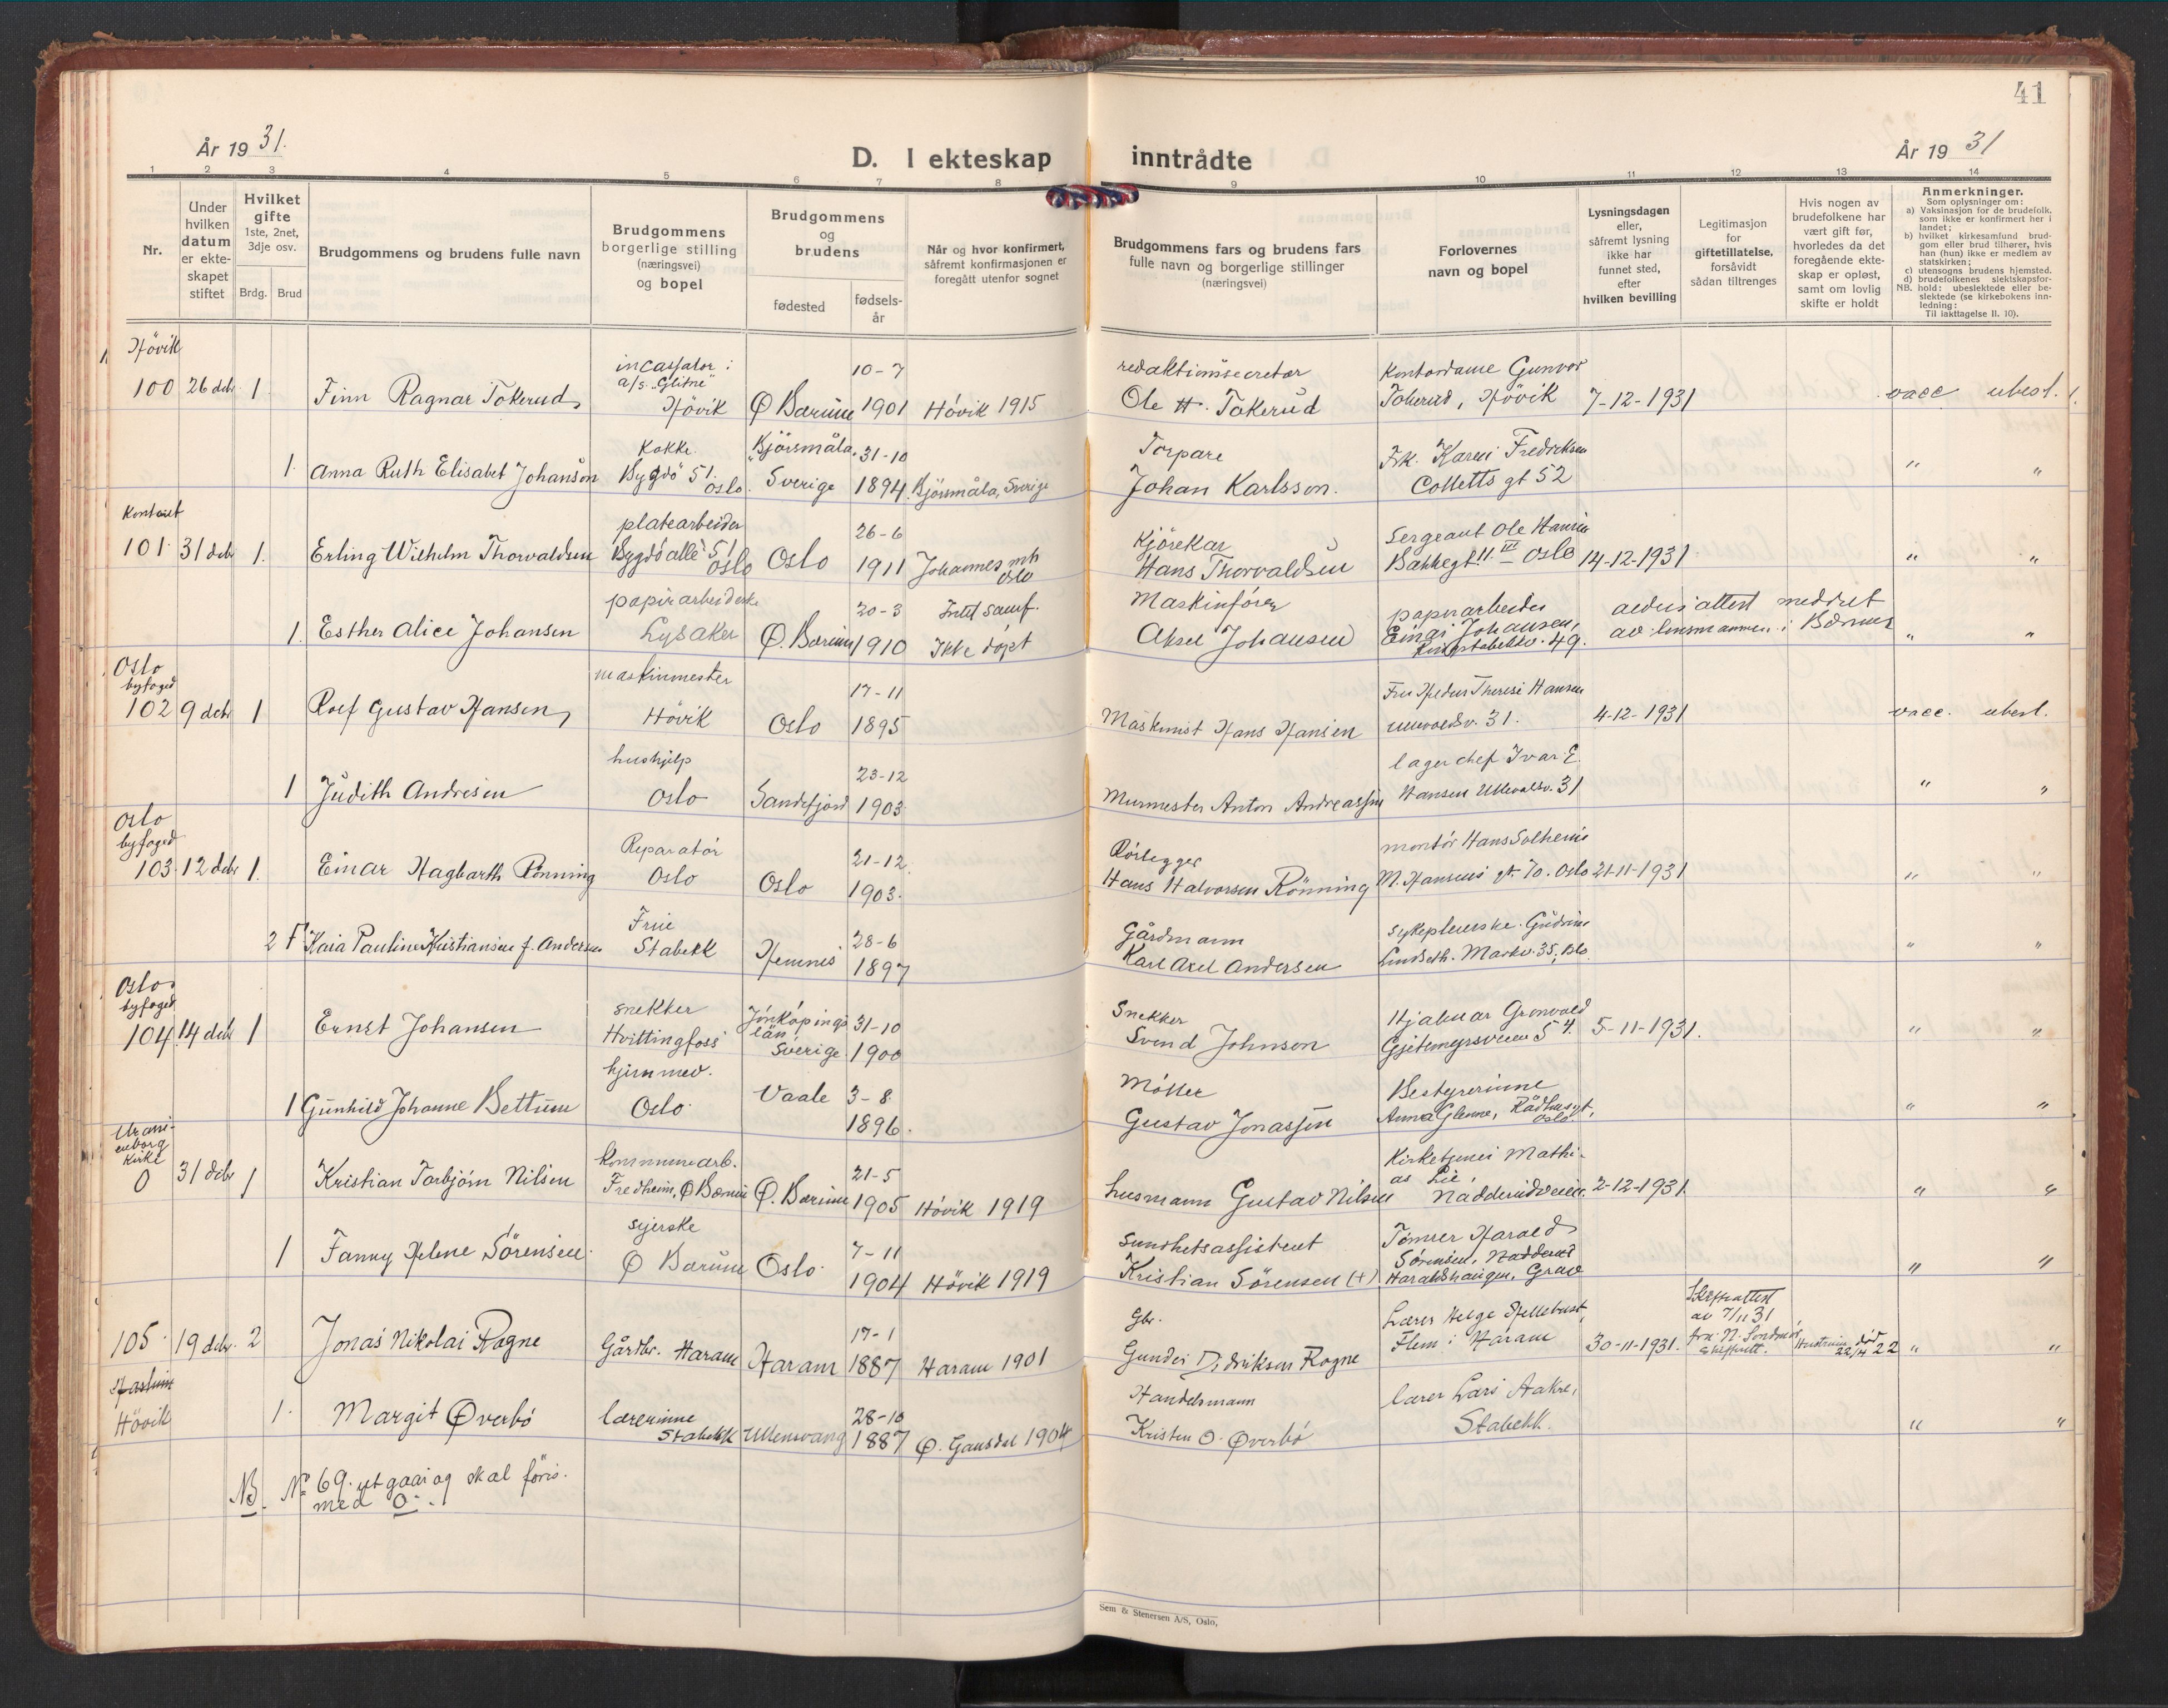 41
År 19 31.
D. I ekteskap inntrådte
År 19 31
1 2 3 4 5 6 7 8 9 10 11 12 13 14
Nr.
Under
hvilken
datum
er ekte-
skapet
stiftet
Hvilket
gifte
1ste, 2net,
3dje osv.
Brdg. Brud
Brudgommens og brudens fulle navn
Brudgommens
borgerlige stilling
(næringsvei)
og bopel
Brudgommens
og
brudens
fødested
fødsels-
år
Når og hvor konfirmert,
såfremt konfirmasjonen er
foregått utenfor sognet
Brudgommens fars og brudens fars
fulle navn og borgerlige stillinger
(næringsvei)
Forlovernes
navn og bopel
Lysningsdagen
eller,
såfremt lysning
ikke har
funnet sted,
efter
hvilken bevilling
Legitimasjon
for
giftetillatelse,
forsåvidt
sådan tiltrenges
Hvis nogen av
brudefolkene har
vært gift før,
hvorledes da det
foregående ekte-
skap er opløst,
samt om lovlig
skifte er holdt
Anmerkninger.
Som oplysninger om:
a) Vaksinasjon for de brudefolk.
som ikke er konfirmert her i
landet;
b) hvilket kirkesamfund brud-
gom eller brud tilhører, hvis
han (hun) ikke er medlem av
statskirken;
c) utensogns brudens hjemsted.
d) brudefolkenes slektskapsfor-
NB. hold: ubeslektede eller be-
slektede (se kirkebokens inn-
ledning:
Til iakttagelse II. 10).
Hövik
100 26 debr 1 Finn Ragnar Tokerud,
incassator i
a/s. "Glitne"
Hövik
Ø Bærum
10-7
1901
Hövik 1915
redaktionssecretær
Ole H. Tokerud
Kontordame Gunvor
Tokerud, Hövik
7-12-1931
vacc ubesl.
1. Anna Ruth Elisabet Johanson
Kokke
Bygdö 51.
Oslo.
Kjörsmåla,
Sverige
31-10
1894.
Kjörsmåla, Sverige
Torpare
Johan Karlsson.
Frk. Karen Fredriksen
Colletts gt 52
" "
Kontoret
101. 31 debr 1. Erling Wilhelm Thorvaldsen
platearbeider
Bygdö allé 51
Oslo
Oslo
26-6
1911
Johannes mh
Oslo
Kjörekar
Hans Thorvaldsen
Sergeant Ole Hansen
Bakkegt. 11 III Oslo
14-12-1931
" "
1. Esther Alice Johansen
papirarbeiderske
Lysaker
Ø. Bærum
20-3
1910
Intet samf.
Ikke döpt
Maskinförer
Aksel Johansen
papirarbeider
Einar Johansen,
49.
attest meddelt
av lensmannen i Bærum
" "
Oslo
byfoged
102 9 debr 1 Rolf Gustav Hansen,
maskinmester
Hövik
Oslo
17-11
1895
Maskinist Hans Hansen
Fru Therese Hansen
Ullevoldsv. 31.
4-12-1931
vacc. ubesl.
1 Judith Andresen
hushjelp
Oslo
Sandefjord
23-12
1903
Murmester Anton Andreassen
lagerchef Ivar E.
Hansen Ullevalsv. 31
" "
Oslo
byfoged
103. 12 debr 1. Einar Hagbarth Rönning
Reparatör
Oslo
Oslo
21-12.
1903.
Rörlegger
Hans Halvorsen Rönning
montör Hans Solheim
M. Hansens gt. 70. Oslo
21-11-1931
" "
2 F Kaia Pauline Kristiansen f. Andersen
Frue
Stabekk
Hemnes
28-6
1897
Gårdmann
Karl Axel Andersen
sykepleierske Gudrun
Lindseth. Markv. 35, Oslo
" "
Oslo
byfoged
104. 14 debr 1 Ernst Johansen
snekker
Hvittingfoss
Jönköpings
län
Sverige
31-10
1900
Snekker
Svend Johnson
Hjalmar Grenvold
Gjetemyrsveien 54.
5-11-1931.
" "
1 Gunhild Johanne Bettum
hjemmev.
Oslo
Vaale
3-8
1896.
Möller
Gustav Jonassen
Bestyrerinne
Anna Glenne, Rådhusgt,
Oslo.
" "
Urani-
enborg
Kirke
0 31 debr 1 Kristian Torbjörn Nilsen
kommunearb.
Fredheim, Ø Bærum
Ø. Bærum
21-5
1905
Hövik 1919
husmann Gustav Nilsen
Kirketjener Mathi-
as Lie,
Nadderudveien.
2-12-1931
" "
1 Fanny Helene Sörensen
syerske
Ø Bærum
Oslo
7-11
1904
Hövik 1919
Sundhetsassistent
Kristian Sörensen (+)
Tömrer Harald
Sörensen, Nadderud
Haraldshaugen, Grav
" "
105. 19 debr. 2 Jonas Nikolai Rogne
Gårdbr. Haram
Haram
17-1
1887
Haram 1901
Gbr.
Gunder Didriksen Rogne
Lærer Helge Hellebust,
Flem i Haram
30-11-1931.
Skifteattest
av 7/11 31
fra N. Sundmör
skifterett.
Hustruen död
22/4 22
" "
Haslum
Hövik
1. Margit Øverbö
lærerinne
Stabekk
Ullensvang
28-10
1887
Ø. Gausdal 1904
Handelsmann
Kristen O. Øverbö
lærer Lars Aakre,
Stabekk.
" "
NB. No 69. utgaar og skal föres.
med 0.
Sem & Stenersen A/S, Oslo,